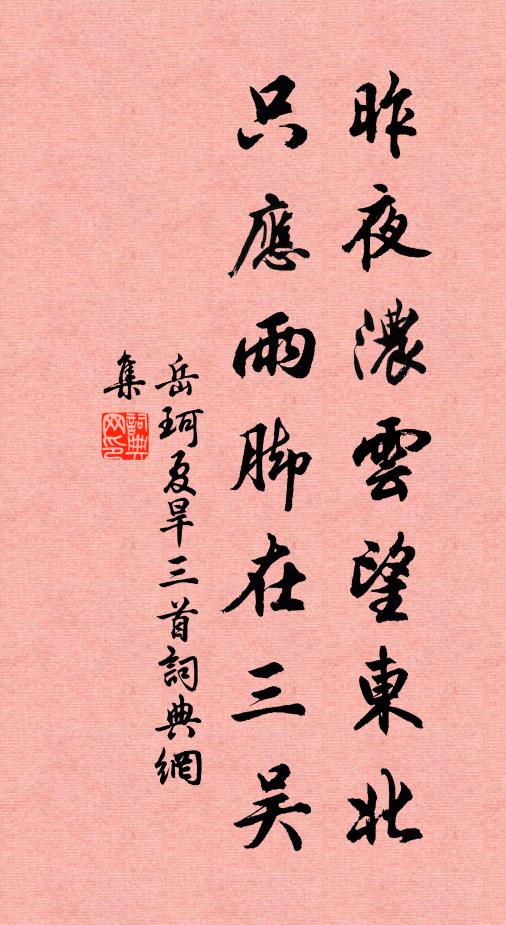 昨夜濃雲望東北
只應雨脚在三吴
岳珂夏旱三首詞典網
集
詞典網印